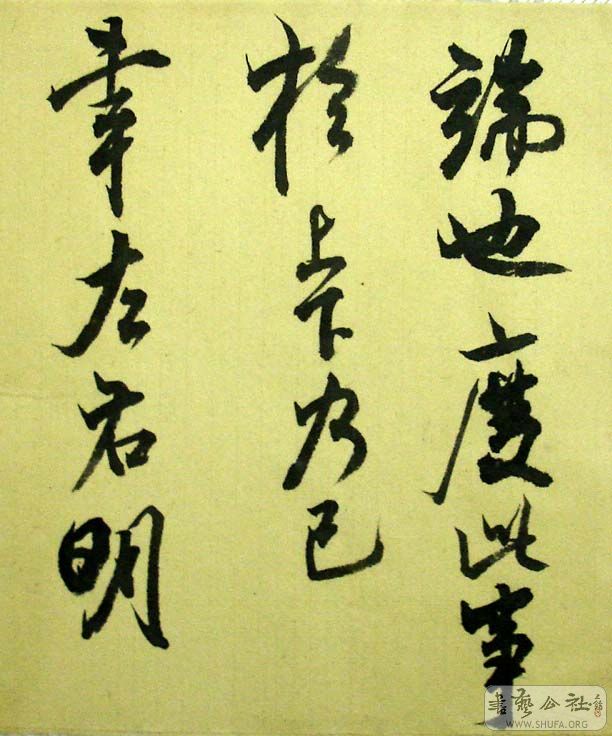 端也度此事
於上下乃已
幸左右明
書藝公社
WWW.SHUFA.ORG